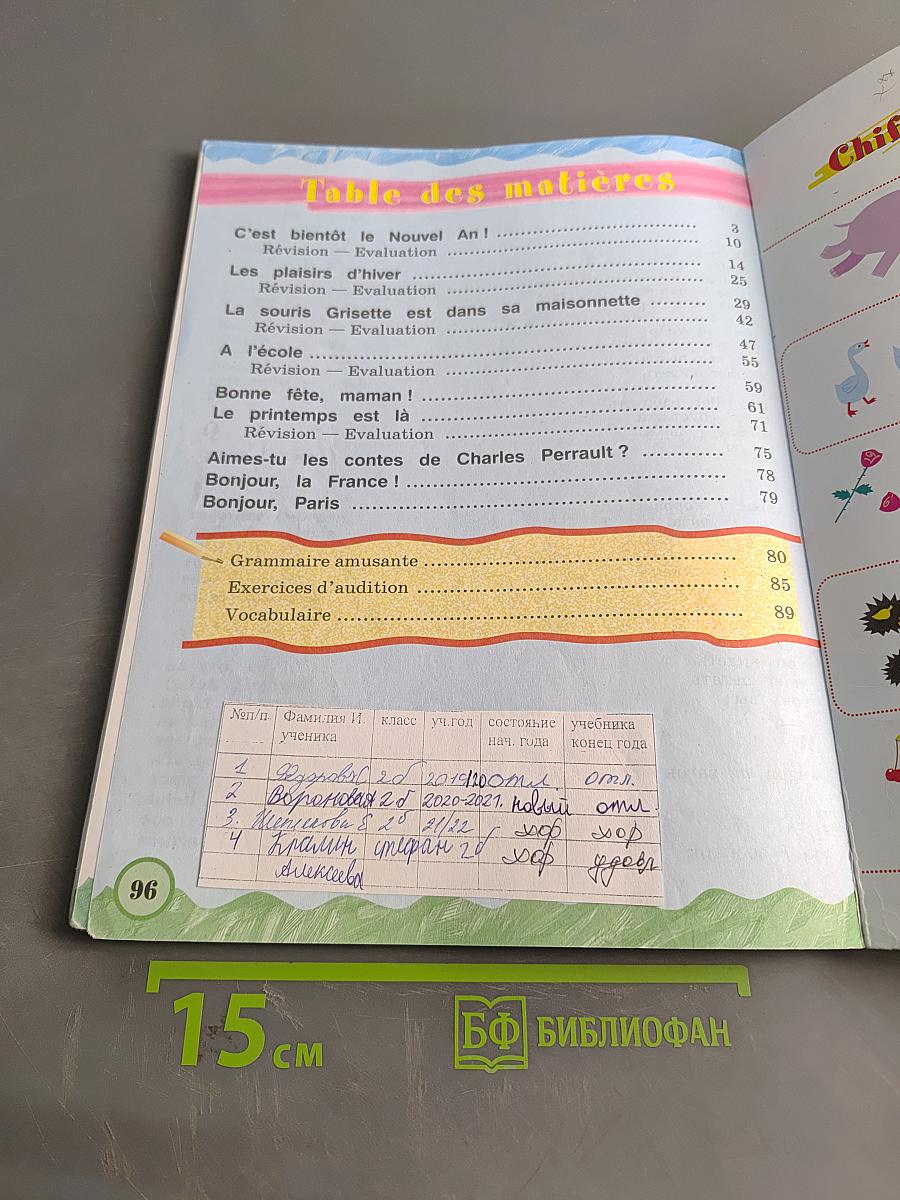 Chif
Table des matières
C'est bientôt le Nouvel An ! 3
Révision — Evaluation 10
Les plaisirs d'hiver 14
Révision — Evaluation 25
La souris Grisette est dans sa maisonnette 29
Révision — Evaluation 42
A l'école 47
Révision — Evaluation 55
Bonne fête, maman ! 59
Le printemps est là 61
Révision — Evaluation 71
Aimes-tu les contes de Charles Perrault ? 75
Bonjour, la France ! 78
Bonjour, Paris 79
Grammaire amusante 80
Exercices d'audition 85
Vocabulaire 89
№п/п Фамилия И. ученика класс уч.год состояние нач. года учебника конец года
1 2б 2019/20 отл. отл.
2 2б 2020-2021. новый отл.
3. 2б 21/22 хор хор
4 Стефан 2б хор удовл
Алексеева
96
15 см
БФ БИБЛИОФАН